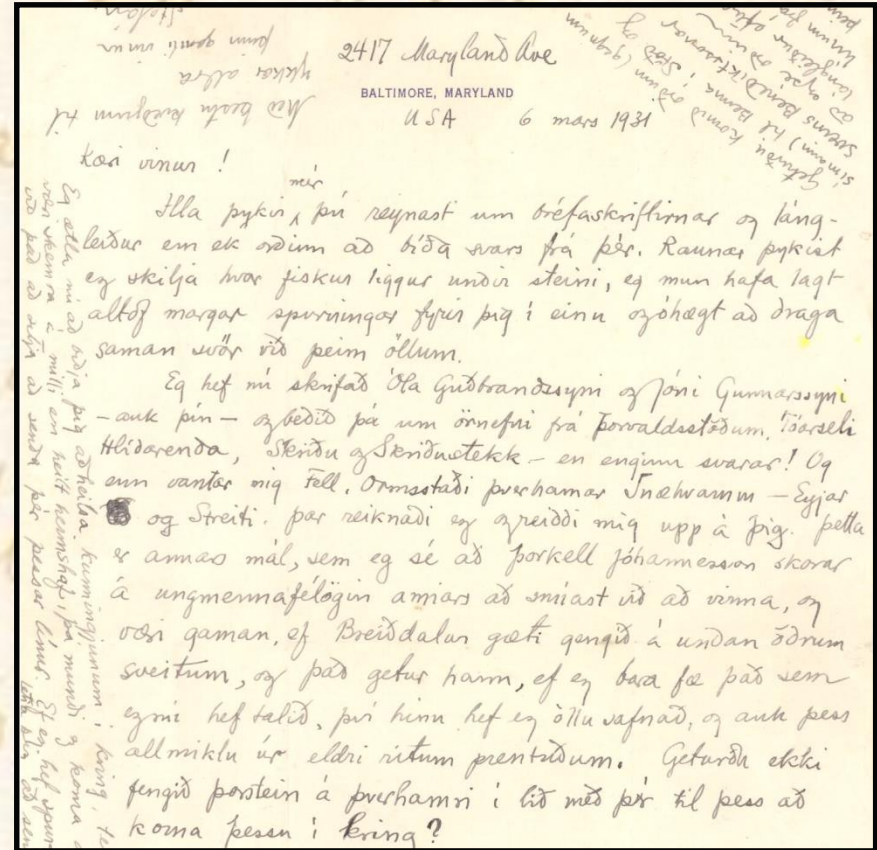 2417 Maryland Ave
BALTIMORE, MARYLAND
USA 6 mars 1931
Kæri vinur!
Illa þykir mér þú reynast um bréfaskriftirnar og láng-
leiður em ek orðinn að bíða svars frá þér. Raunar þykist
eg skilja hvar fiskur liggur undir steini, eg mun hafa lagt
altof margar spurningar fyrir þig í einu og óhægt að draga
saman svör við þeim öllum.
Eg hef nú skrifað Óla Guðbrandssyni og Jóni Gunnarssyni
- auk þín - og beðið þá um örnefni frá Þorvaldsstöðum, Tóarseli
Hlíðarenda, Skriðu og Skriðustekk - en enginn svarar! Og
enn vantar mig Fell, Ormsstaði Þverhamar Snæhvamm - Eyjar
og Streiti. Þar reiknaði eg og reiddi mig upp á þig. Þetta
er annars mál, sem eg sé að Þorkell Jóhannesson skorar
á ungmennafélögin annars að snúast við að vinna, og
væri gaman, ef Breiðdalur gæti gengið á undan öðrum
sveitum, og það getur hann, ef eg bara fæ það sem
eg nú hef talið, því hinu hef eg öllu safnað, og auk þess
allmiklu úr eldri ritum prentuðum. Geturðu ekki
fengið Þorstein á Þverhamri í lið með þér til þess að
koma þessu í kring?
Eg ætla nú að biðja þig að heilsa kunningjunum í kring,
væri skemra á milli en heilt heimshaf, þá mundi eg koma
við það að setja að senda þér þessar línur. Ef eg hef
Með bestu kveðjum til
ykkar allra
þinn gamli vinur
Stefán
Geturðu komið orðum (gegnum
símann) til Benna í Stöð og
Benediktssonar
að eg sé orðinn
lángleiður eftir